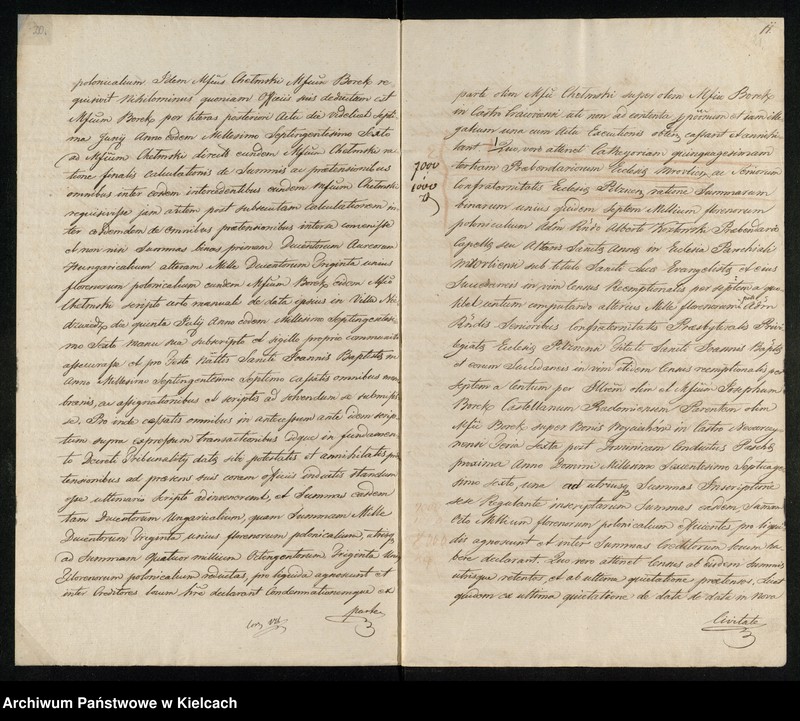 20.
polonicalium Idem Mfcus Chełmski Mfcum Borek re
quisivit Nihilominus quoniam Officiis suis deductum est
Mfcum Borek per literas posteriori Actu die videlicet Septi
ma Junij Anno eodem Millesimo Septingentesimo Sexto
ad Mfcum Chełmski directas eundem Mfcum Chełmski ra
tione finalis calculationis de Summis ac prætensionibus
omnibus inter eosdem intercedentibus eundem Mfcum Chełmski
requisivisse jam autem post subsecutam calculationem in
ter eosdem de omnibus prætensionibus interea convenisse
et non nisi Summas binas primam Ducentorum Aureorum
Hungaricalium alteram Mille Ducentorum Triginta unius
florenorum polonicalium eundem Mfcum Borek eidem Mfco
Chełmski scripto arte manuali de data ipsius in Villa
die quinta Julij Anno eodem Millesimo Septingentesi
mo Sexto manu sua subscripto et sigillo proprio communito
assecurasse et pro Festo Nattis Sancti Joannis Baptistæ in
Anno Millesimo Septingentesimo Septimo cassatis omnibus mem
branis, ac assignationibus et scriptis ad solvendum se submisis
se. Pro inde cassatis omnibus in antecessum ante idem scrip
tum supra expressum transactionibus eoque in fundamen
to Decreti Tribunalitij datis sibi potestatis et annihilatis præ
tensionibus ad præsens suis coram officiis inductis standum
esse ultenario scripto adinvenerunt, et Summas easdem
tam Ducentorum Ungaricalium, quam Summam Mille
Ducentorum Triginta unius florenorum polonicalium, utrasq
ad Summam quatuor millium Octingentorum Triginta Unius
Florenorum polonicalium reductas, pro liquida agnoscunt et
inter Creditores locum hre declarant Condemnationemque ex
parte
11.
parte olim Mfci Chełmski super olim Mfco Borek
in Castro Cracoviensi uti non ad contenta et tam ille
galium una cum Actu Executionis obten cassant et annihi
lant Quo vero attinet Cathegoriam quinquagesimam
tertiam Præbendariorum Ecclesiæ ac Seniorum
Confraternitatis Ecclesiæ Pilznen ratione Summarum
binarum unius quidem Septem Millium florenorum
polonicalium Adm Rndo Alberto Præbendario
Capellæ seu Altaris Sanctæ Annæ in Ecclesia Parochiali
sub titulo Sancti Lucæ Evangelistæ et ejus
Successoribus in vim Census Reemptionalis per septem a quo
libet centum computando alterius Mille florenorum Adm
Rndis Senioribus Confraternitatis Præsbyteralis Privi
legiatæ Ecclesiæ Pilznensi Tituli Sancti Joannis Baptæ
et eorum Successoribus in vim itidem Census reemptionalis per
Septem a Centum per Illrem olim et Mfcum Josephum
Borek Castellanum Radomiensem Parentem olim
Mfci Borek super Bonis in Castro Novocorcy
nensi Feria Sexta post Dominicam Conductus Paschæ
proxima Anno Domini Millesimo Sexcentesimo Septuage
simo Sexto, una ad utrasq Summas Inscriptione
sese Regulante inscriptarum Summas easdem Summam
Octo Millium florenorum polonicalium efficientes, pro liqui
dis agnoscunt et inter Summas Creditorum locum ha
bere declarant. Quo vero attinet Census ab eisdem Summis
ubique retentos et ab ultima quietatione prætensos, licet
quidem ex ultima quietatione de data de dato in Nova
Civitate
7000
1000
Archiwum Państwowe w Kielcach